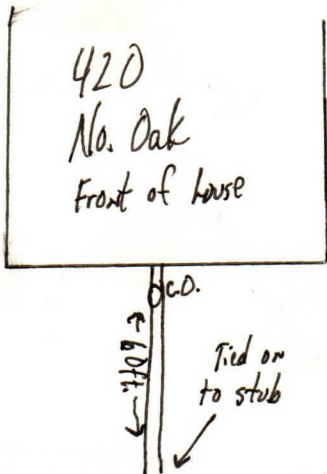 420
No. Oak
Front of house
C.O.
60ft.
Tied on
to stub